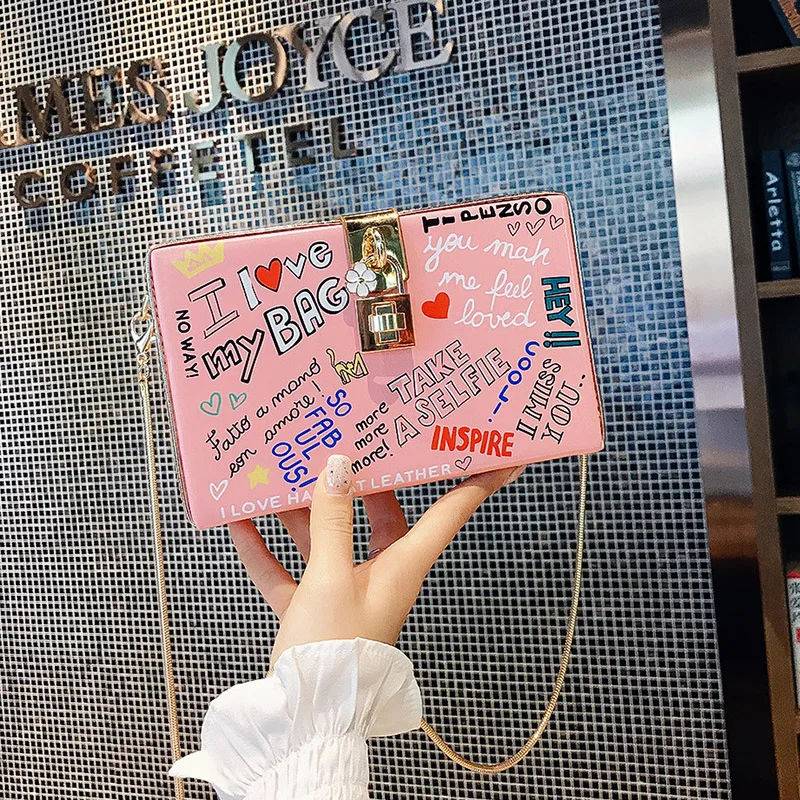 MES JOYCE
COFFETEL
Arletta
I love
my BAG
NO WAY!
TI PENSO
you mak
me feel
loved
HEY!!
Fatto a mano
con amore!
SO
FAB
UL
OUS!
more
more
more!
TAKE
A SELFIE
COOL!
II MISS
YOU..
INSPIRE
I LOVE HA AT LEATHER